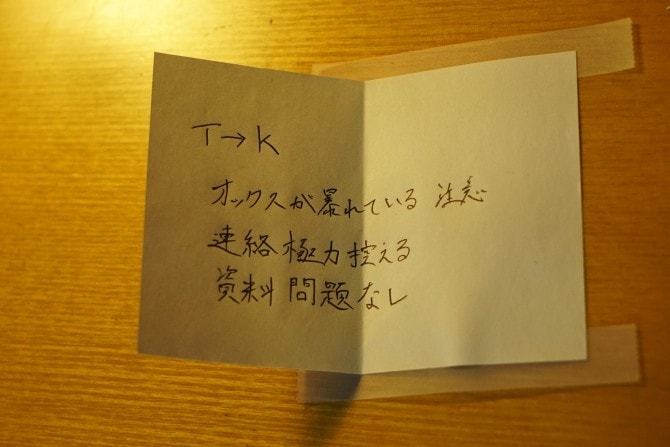 T→K
オックスが暴れている 注意
連絡極力控える
資料問題なし